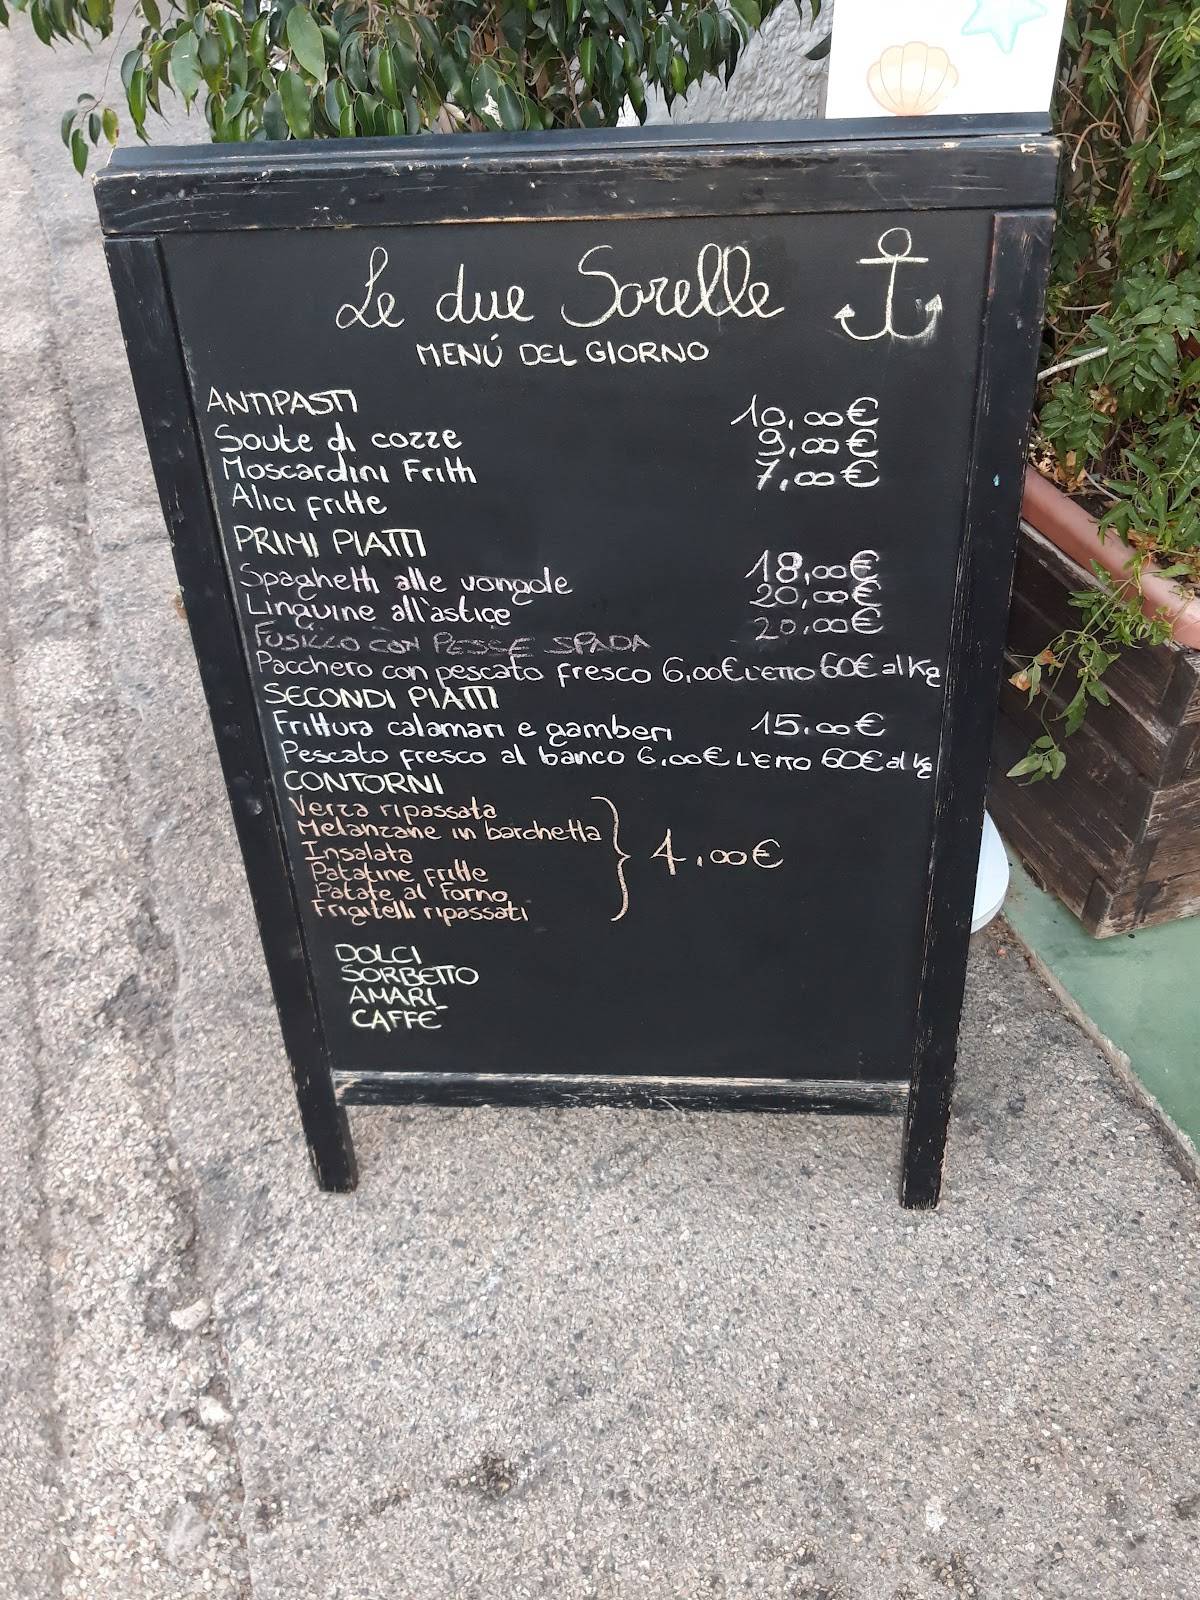 Le due Sorelle
MENÚ DEL GIORNO
ANTIPASTI
Soute di cozze 10,00€
Moscardini Fritti 9,00€
Alici fritte 7,00€
PRIMI PIATTI
Spaghetti alle vongole 18,00€
Linguine all'astice 20,00€
FUSILLO CON PESSE SPADA 20,00€
Pacchero con pescato fresco 6,00€ L'ETTO 60€ al Kg
SECONDI PIATTI
Frittura calamari e gamberi 15,00€
Pescato fresco al banco 6,00€ L'ETTO 60€ al Kg
CONTORNI
Verza ripassata
Melanzane in barchetta
Insalata
Patatine fritte
Patate al Forno
Frigitelli ripassati
4,00€
DOLCI
SORBETTO
AMARI
CAFFE